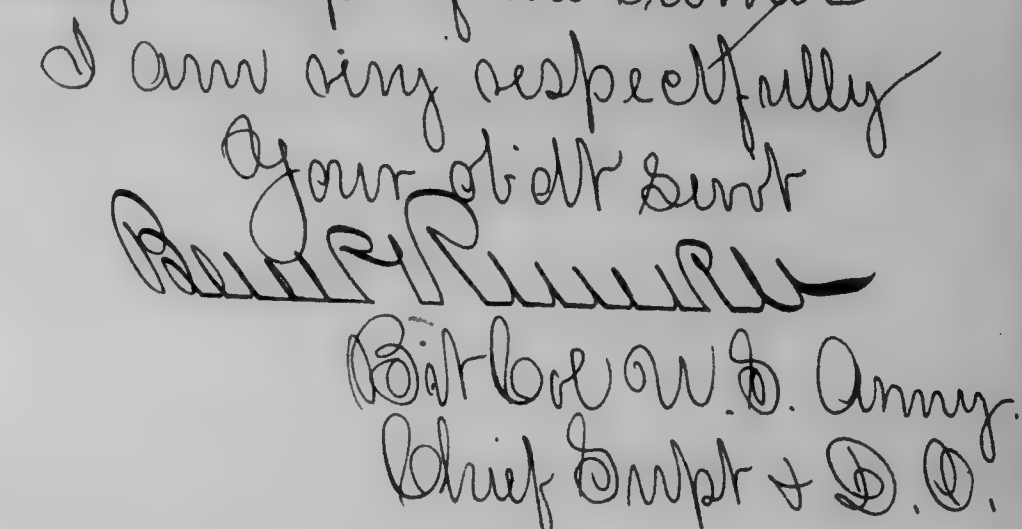 I am very respectfully
Your obedt Servt
Ben P Runkle
Bvt Col U.S. Army.
Chief Supt & D.O.